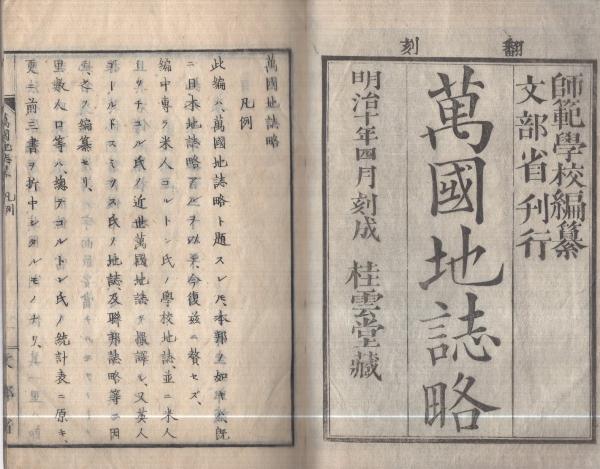 翻刻
師範學校編纂
文部省刊行
萬國地誌略
明治十年四月刻成 桂雲堂藏
萬國地誌略
凡例
此編ハ、萬國地誌略ト題スレ𪜈、本邦ノ如キハ、既
ニ日本地誌略アルヲ以テ、今復茲ニ贅セズ、
編中專ラ米人コルトン氏ノ學校地誌、並ニ米人
且ゥチコル氏ノ近世萬國地誌ヲ撮譯シ、又英人
ゴールドスミッス氏ノ地誌、及聯邦誌略等ニ因
テ、之ヲ編纂セリ、
里數人口等ハ、總テコルトン氏ノ統計表ニ原キ、
更ニ前三書ヲ折中シタルモノナリ、
萬國地誌略 凡例
文部省